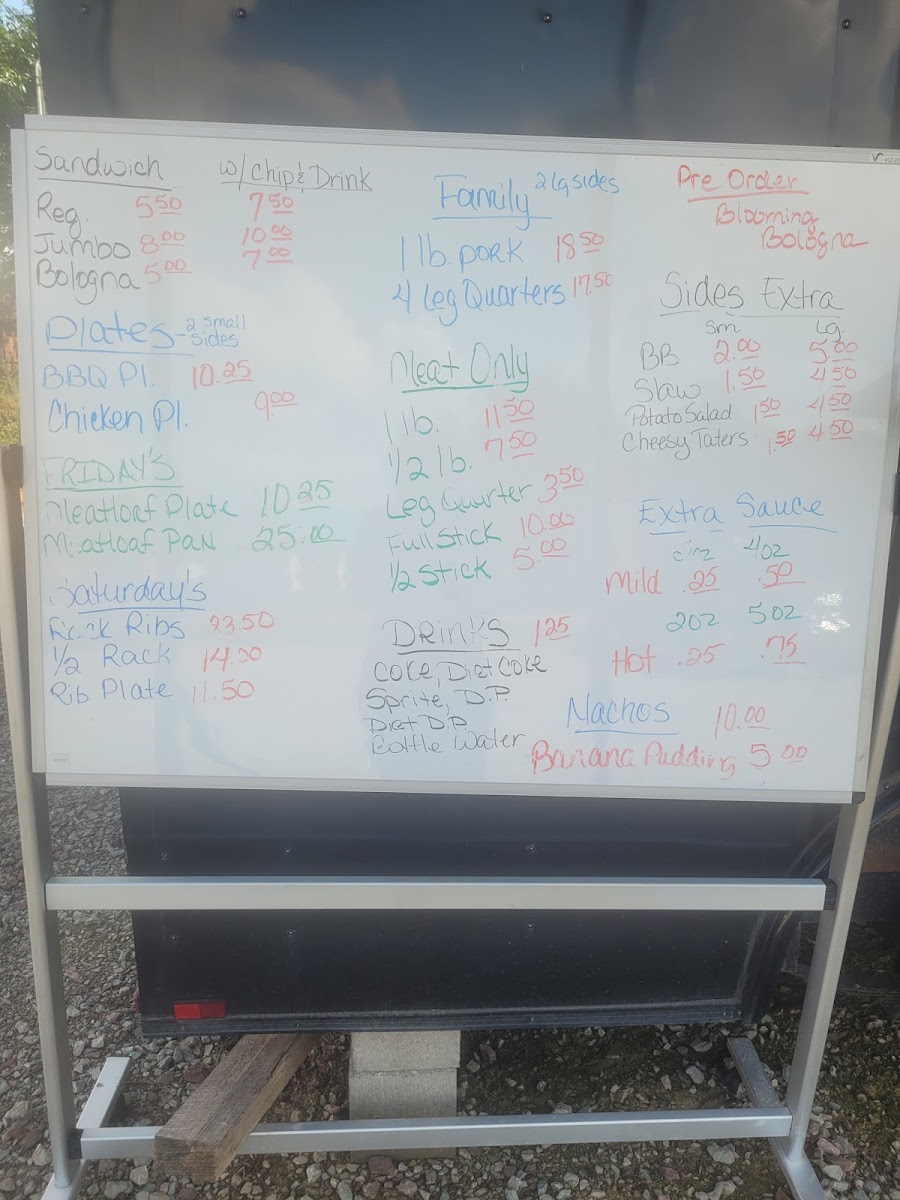 Sandwich w/ Chip & Drink
Reg. 5.50 7.50
Jumbo 8.00 10.00
Bologna 5.00 7.00
Plates - 2 small sides
BBQ Pl. 10.25
Chicken Pl. 9.00
FRIDAY'S
Meatloaf Plate 10.25
Meatloaf Pan 25.00
Saturday's
Rack Ribs 23.50
1/2 Rack 14.00
Rib Plate 11.50
Family 2 lg sides
1 lb. PORK 18.50
4 Leg Quarters 17.50
Meat Only
1 lb. 11.50
1/2 lb. 7.50
Leg Quarter 3.50
Full Stick 10.00
1/2 Stick 5.00
DRINKS 1.25
Coke, Diet Coke
Sprite, D.P.
Diet D.P.
Bottle Water
Pre Order
Blooming
Bologna
Sides Extra
Sm. Lg.
BB 2.00 5.00
Slaw 1.50 4.50
Potato Salad 1.50 4.50
Cheesy Taters 1.50 4.50
Extra Sauce
4oz
Mild .25 .50
2oz 5oz
Hot .25 .75
Nachos 10.00
Banana Pudding 5.00